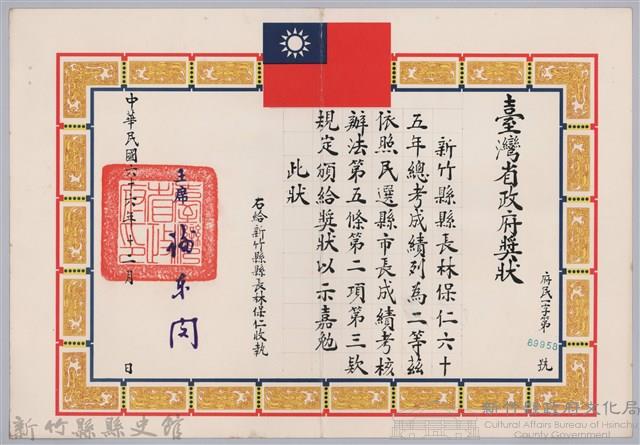 臺灣省政府獎狀
府民一字第69958號
新竹縣縣長林保仁六十
五年總考成績列為二等茲
依照民選縣市長成績考核
辦法第五條第二項第三款
規定頒給獎狀以示嘉勉
此狀
右給新竹縣縣長林保仁收執
主席謝東閔
中華民國六十六年十二月　日
新竹縣縣史館
新竹縣政府文化局
Cultural Affairs Bureau of Hsinchu
County Government